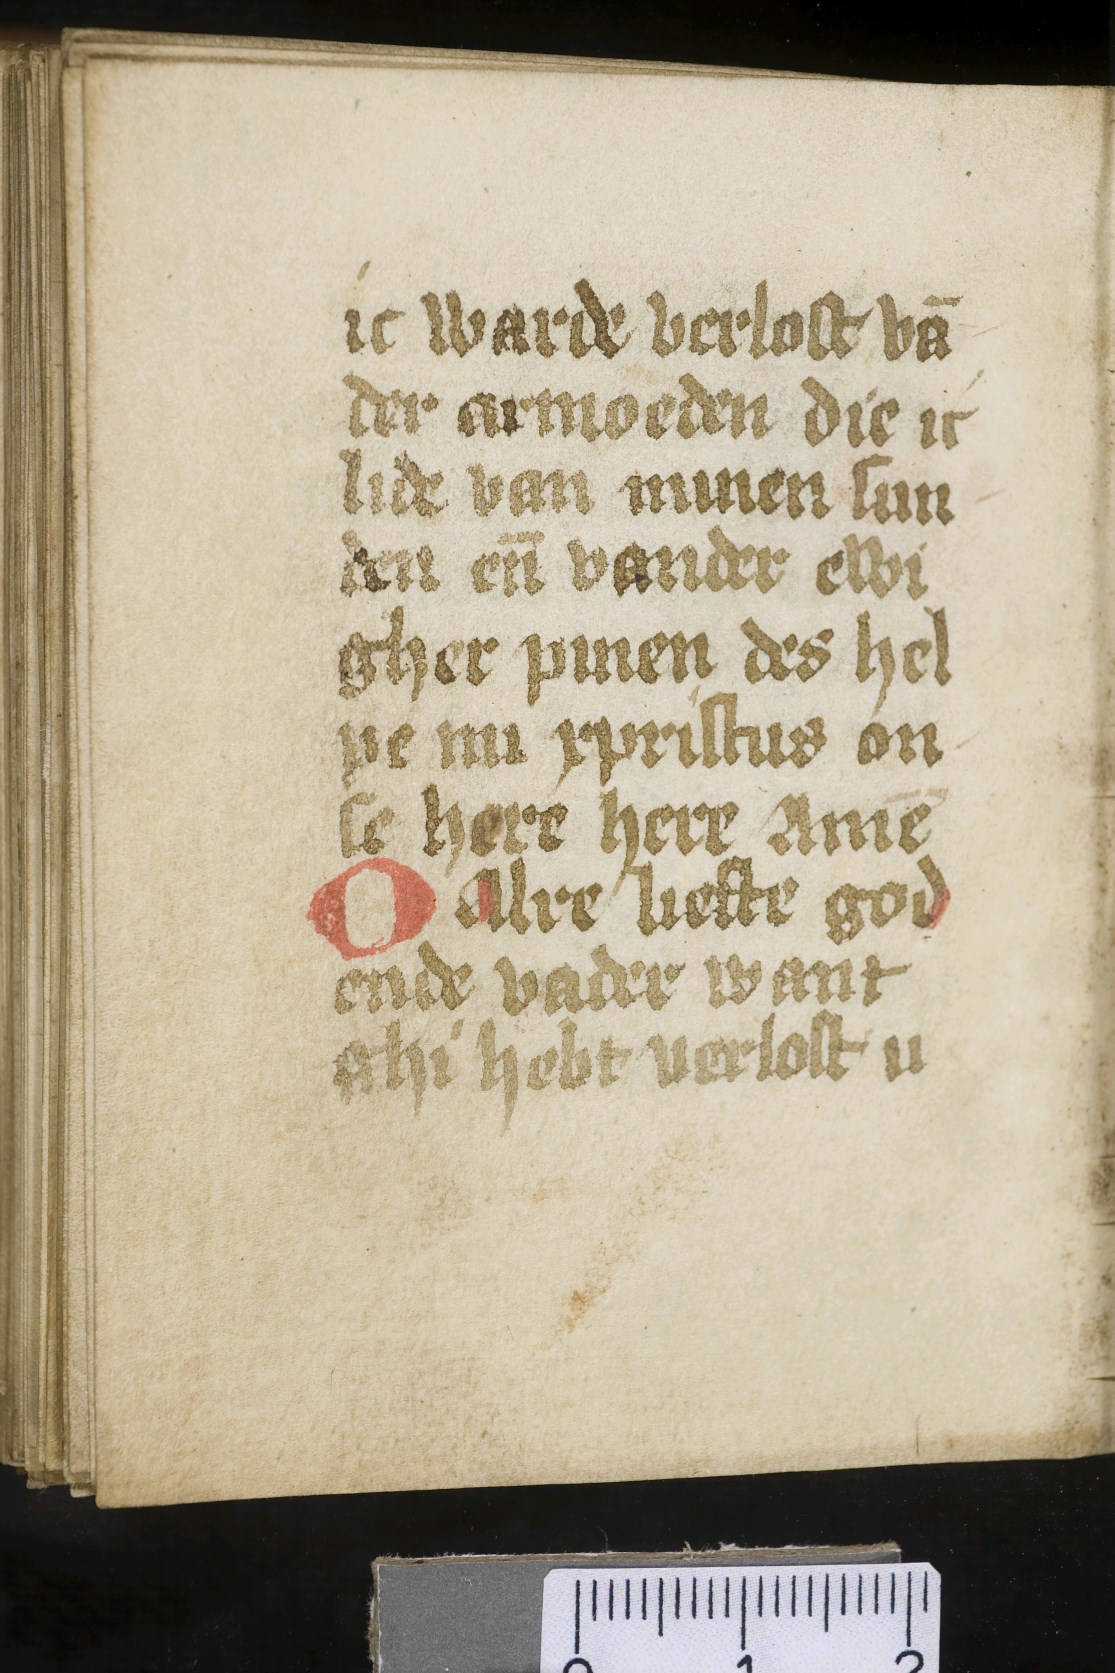 ic warde verlost vā
der armoeden die ic
lide van minen sun
den en̄ vander ewi
gher pinen des hel
pe mi xpristus on
se here here Amē
O Alre lieste god
ende vader want
ghi hebt verlost u
0 1 2